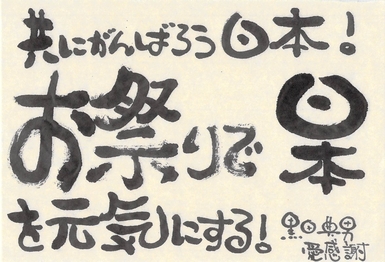 共にがんばろう日本！
お祭りで日本
を元気にする！
黒田典男
愛感謝